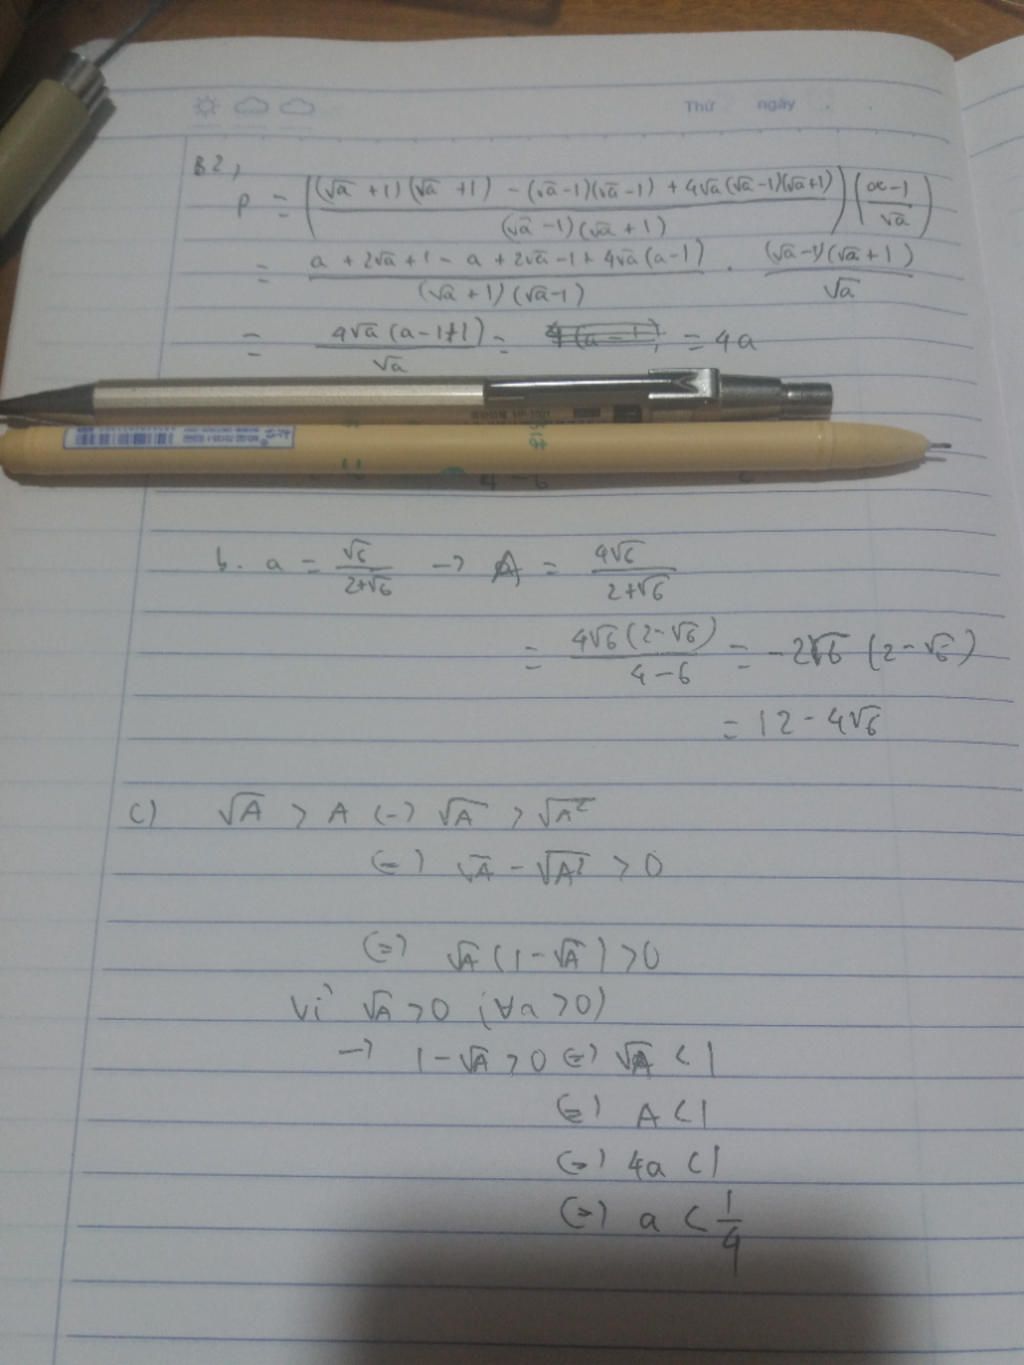 Thứ ngày
B2,
P = ( ((√a + 1)(√a + 1) - (√a - 1)(√a - 1) + 4√a(√a - 1)(√a + 1)) / ((√a - 1)(√a + 1)) ) ( (a - 1) / √a )
= (a + 2√a + 1 - a + 2√a - 1 + 4√a(a - 1)) / ((√a + 1)(√a - 1)) . ((√a - 1)(√a + 1)) / √a
= (4√a(a - 1 + 1)) / √a = = 4a
4 - 6
b. a = √6 / (2 + √6) → A = 4√6 / (2 + √6)
= (4√6(2 - √6)) / (4 - 6) = -2√6 (2 - √6)
= 12 - 4√6
c) √A > A (-) √A > √A²
(=) √A - √A² > 0
(=) √A (1 - √A) > 0
Vì √A > 0 (∀a > 0)
→ 1 - √A > 0 (=) √A < 1
(=) A < 1
(=) 4a < 1
(=) a < 1/4